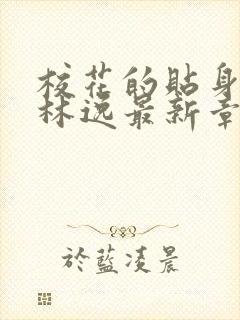 校花的貼身
林逸最新章
於藍凌晨